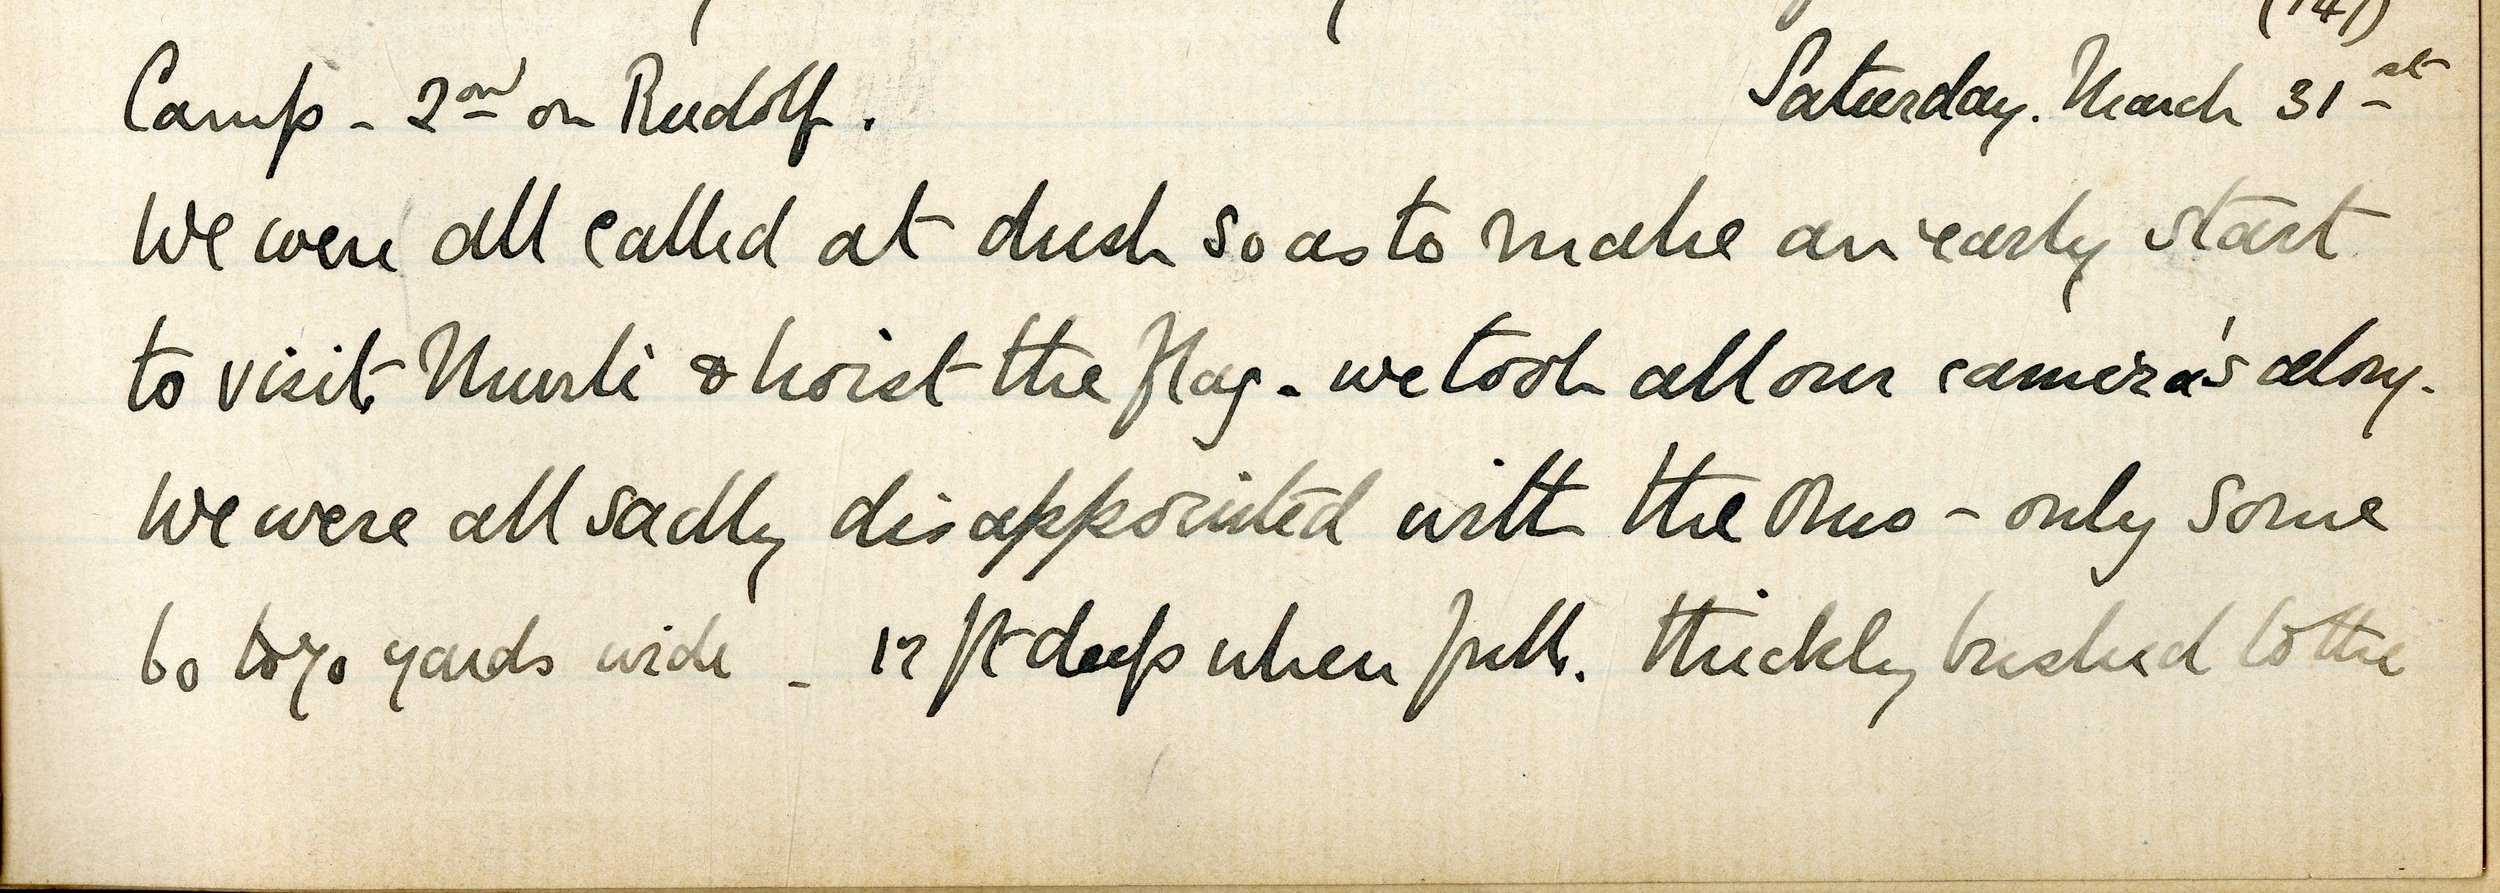 Camp - 2nd on Rudolf. Saturday. March 31st
We were all called at dusk so as to make an early start
to visit Murli & hoist the flag - we took all our camera's along.
We were all sadly disappointed with the Omo - only some
60 to 70 yards wide - 12 ft deep when full. Thickly bushed to the